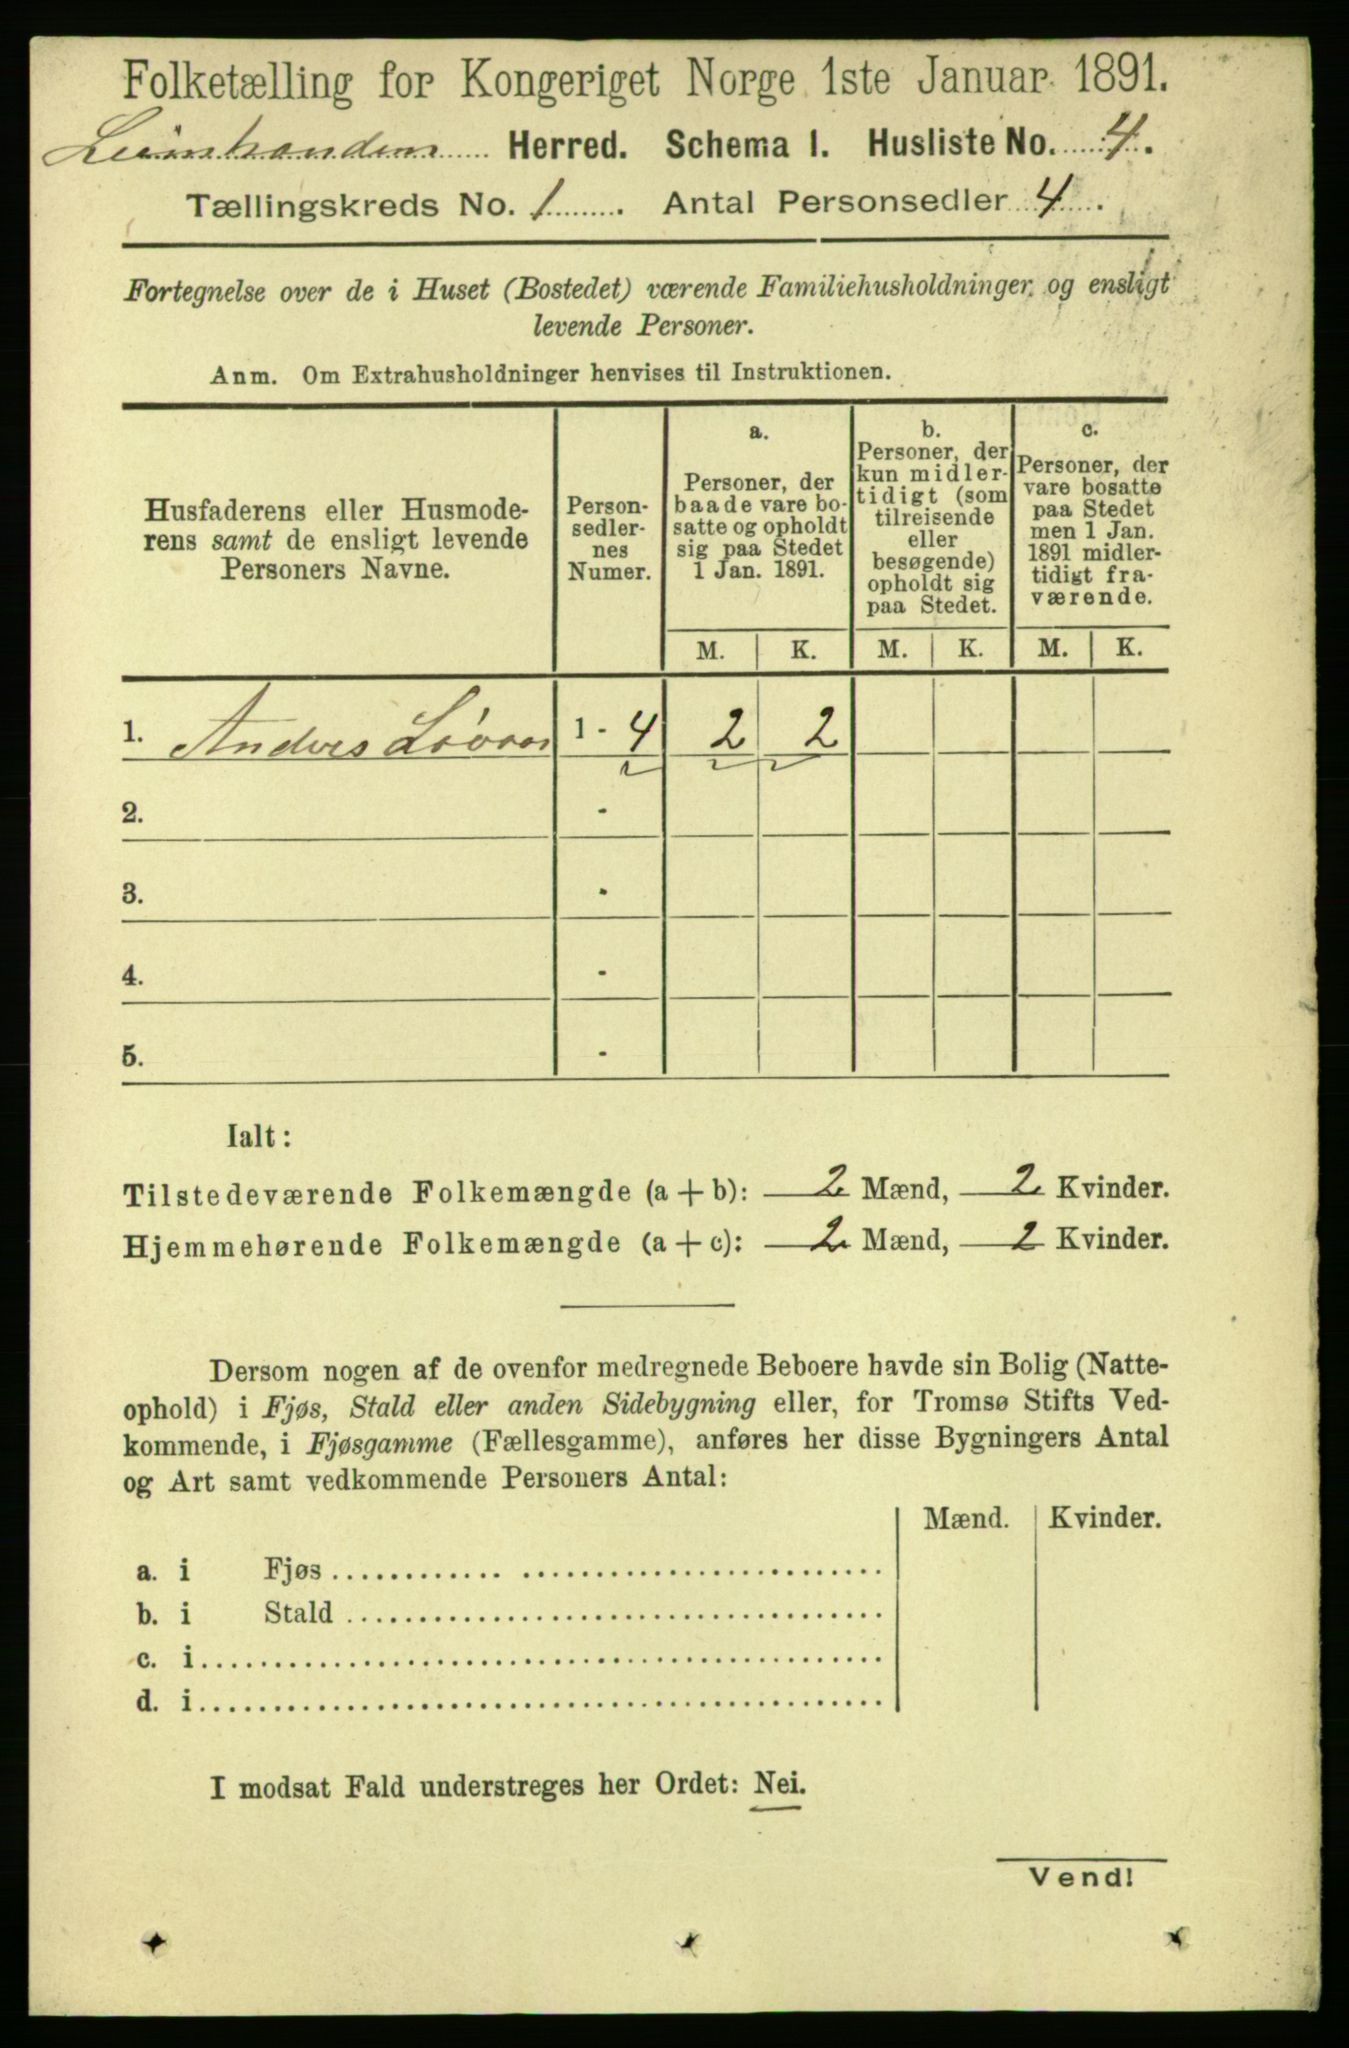 Folketælling for Kongeriget Norge 1ste Januar 1891.
Leinstranden Herred. Schema 1. Husliste No. 4.
Tællingskreds No. 1. Antal Personsedler 4.
Fortegnelse over de i Huset (Bostedet) værende Familiehusholdninger og ensligt
levende Personer.
Anm. Om Extrahusholdninger henvises til Instruktionen.
Husfaderens eller Husmode-
rens samt de ensligt levende
Personers Navne.
Person-
sedler-
nes
Numer.
a.
Personer, der
baade vare bo-
satte og opholdt
sig paa Stedet
1 Jan. 1891.
b.
Personer, der
kun midler-
tidigt (som
tilreisende
eller
besøgende)
opholdt sig
paa Stedet.
c.
Personer, der
vare bosatte
paa Stedet
men 1 Jan.
1891 midler-
tidigt fra-
værende.
M. K. M. K. M. K.
1. Anders 1 - 4 2 2
2. -
3. -
4. -
5. -
Ialt:
Tilstedeværende Folkemængde (a + b): 2 Mænd, 2 Kvinder.
Hjemmehørende Folkemængde (a + c): 2 Mænd, 2 Kvinder.
Dersom nogen af de ovenfor medregnede Beboere havde sin Bolig (Natte-
ophold) i Fjøs, Stald eller anden Sidebygning eller, for Tromsø Stifts Ved-
kommende, i Fjøsgamme (Fællesgamme), anføres her disse Bygningers Antal
og Art samt vedkommende Personers Antal:
Mænd. Kvinder.
a. i Fjøs
b. i Stald
c. i
d. i
I modsat Fald understreges her Ordet: Nei.
Vend!